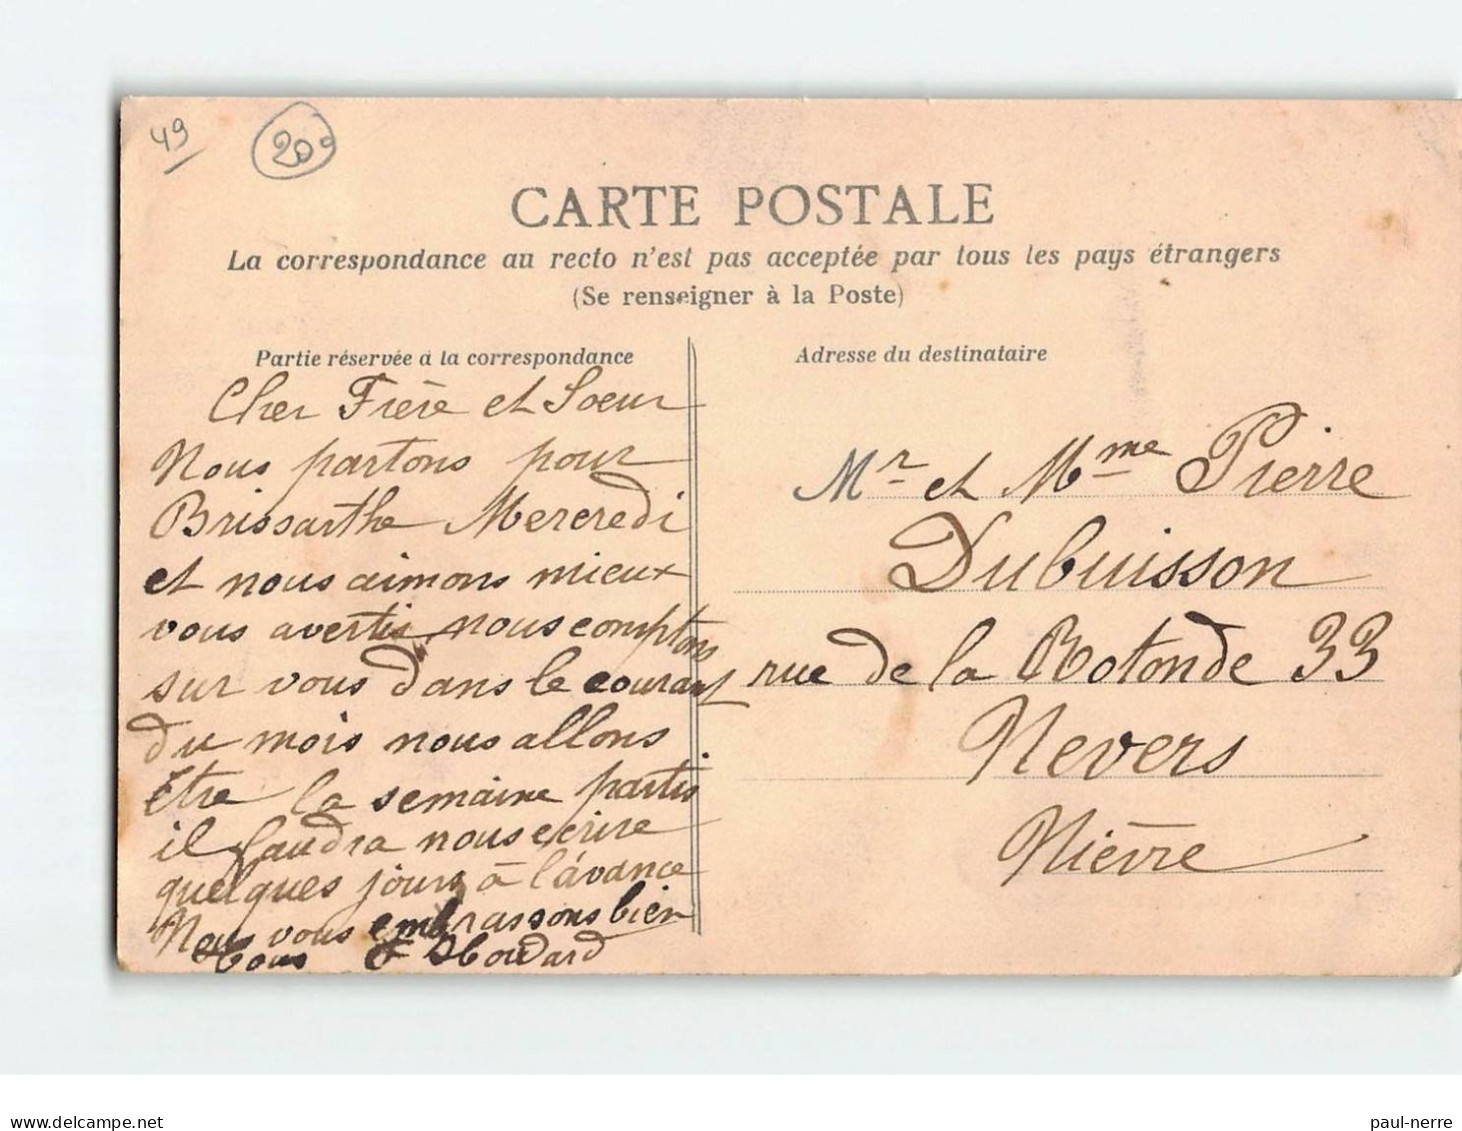 49
20
CARTE POSTALE
La correspondance au recto n'est pas acceptée par tous les pays étrangers
(Se renseigner à la Poste)
Partie réservée à la correspondance
Cher Frère et Soeur
Nous partons pour
Brissarthe Mercredi
et nous aimons mieux
vous avertis nous comptons
sur vous dans le courant
du mois nous allons
être la semaine partis
il faudra nous ecrire
quelques jours à l'avance
Nous vous embrassons bien
tous F Houdard
Adresse du destinataire
Mr et Mme Pierre
Dubuisson
rue de la Rotonde 33
Nevers
Nièvre
paul-nerre